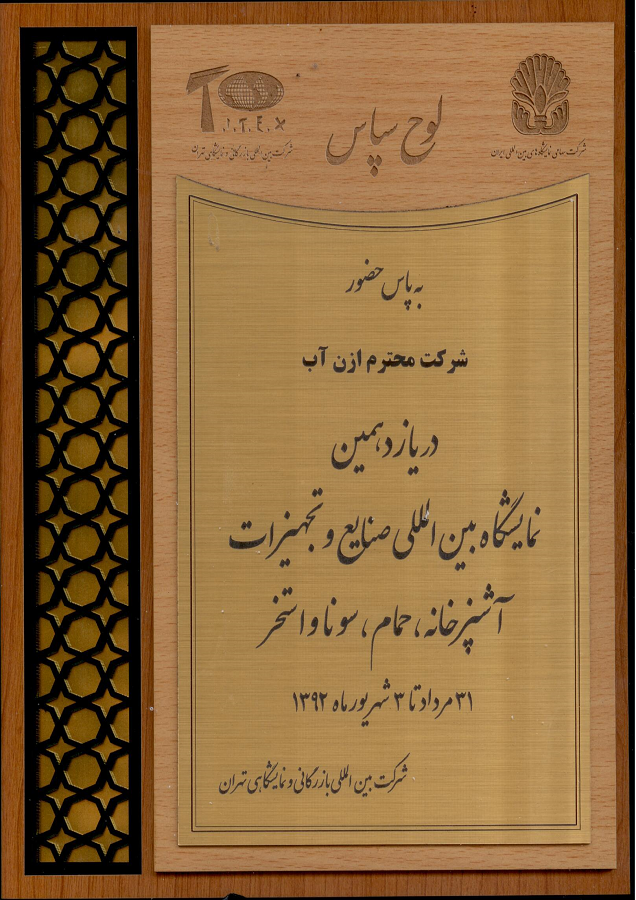 لوح سپاس
شرکت سهامی نمایشگاههای بین المللی ایران
شرکت بین المللی بازرگانی و نمایشگاهی تهران
به پاس حضور
شرکت محترم ازن آب
در یازدهمین
نمایشگاه بین المللی صنایع و تجهیزات
آشپزخانه، حمام، سونا و استخر
۳۱ مرداد تا ۳ شهریور ماه ۱۳۹۲
شرکت بین المللی بازرگانی و نمایشگاهی تهران